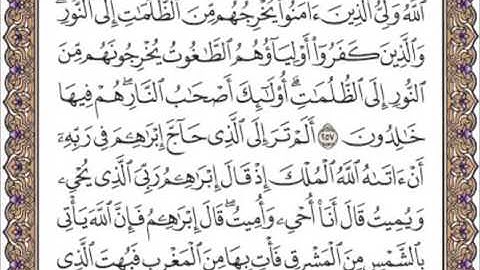 ٱللَّهُ وَلِيُّ ٱلَّذِينَ ءَامَنُوا۟ يُخْرِجُهُم مِّنَ ٱلظُّلُمَٰتِ إِلَى ٱلنُّورِ ۖ
وَٱلَّذِينَ كَفَرُوٓا۟ أَوْلِيَآؤُهُمُ ٱلطَّٰغُوتُ يُخْرِجُونَهُم مِّنَ
ٱلنُّورِ إِلَى ٱلظُّلُمَٰتِ ۗ أُو۟لَٰٓئِكَ أَصْحَٰبُ ٱلنَّارِ ۖ هُمْ فِيهَا
خَٰلِدُونَ ٢٥٧ أَلَمْ تَرَ إِلَى ٱلَّذِى حَآجَّ إِبْرَٰهِـۧمَ فِى رَبِّهِۦٓ
أَنْ ءَاتَىٰهُ ٱللَّهُ ٱلْمُلْكَ إِذْ قَالَ إِبْرَٰهِـۧمُ رَبِّىَ ٱلَّذِى يُحْىِۦ
وَيُمِيتُ قَالَ أَنَا۠ أُحْىِۦ وَأُمِيتُ ۖ قَالَ إِبْرَٰهِـۧمُ فَإِنَّ ٱللَّهَ يَأْتِى
بِٱلشَّمْسِ مِنَ ٱلْمَشْرِقِ فَأْتِ بِهَا مِنَ ٱلْمَغْرِبِ فَبُهِتَ ٱلَّذِى